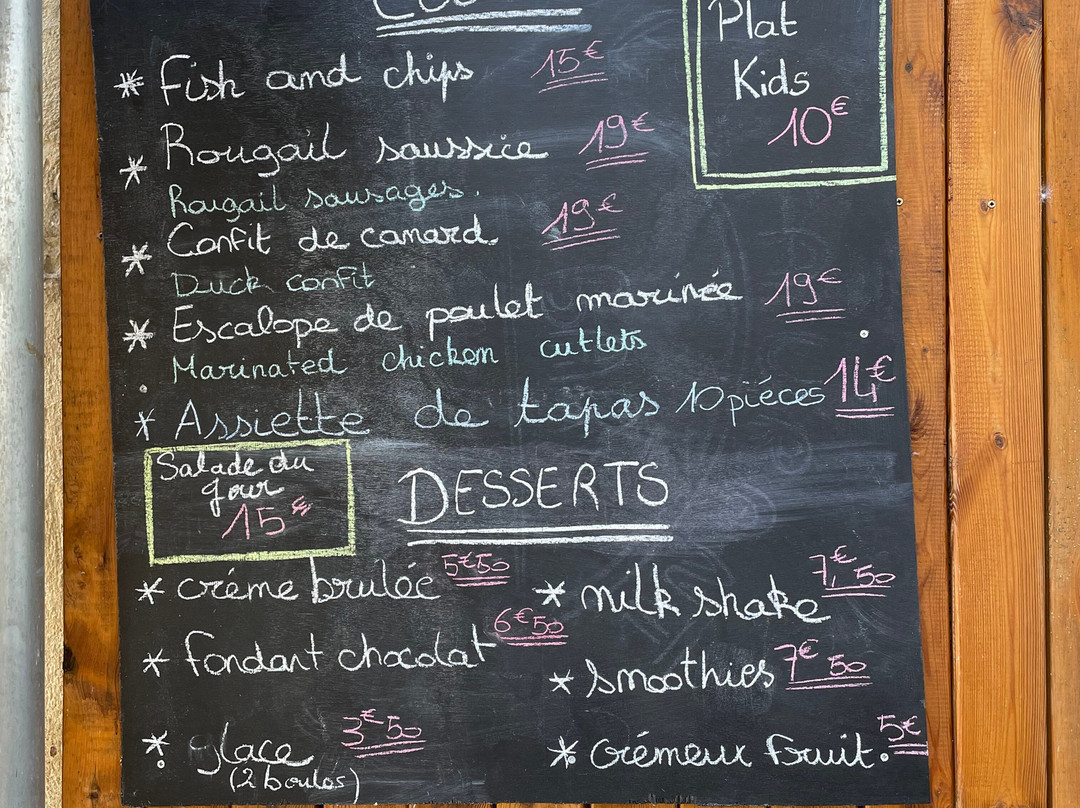 Plat
Kids
10€
* Fish and chips 15€
* Rougail saussice 19€
Rougail sausages.
* Confit de canard 19€
Duck confit
* Escalope de poulet marinée 19€
Marinated chicken cutlets
* Assiette de tapas 10 piéces 14€
Salade du
jour
15€
DESSERTS
* créme brulée 5€50
* milk shake 7€,50
* fondant chocolat 6€50
* smoothies 7€50
* glace 3€50
(2 boules)
* crémeux fruit. 5€